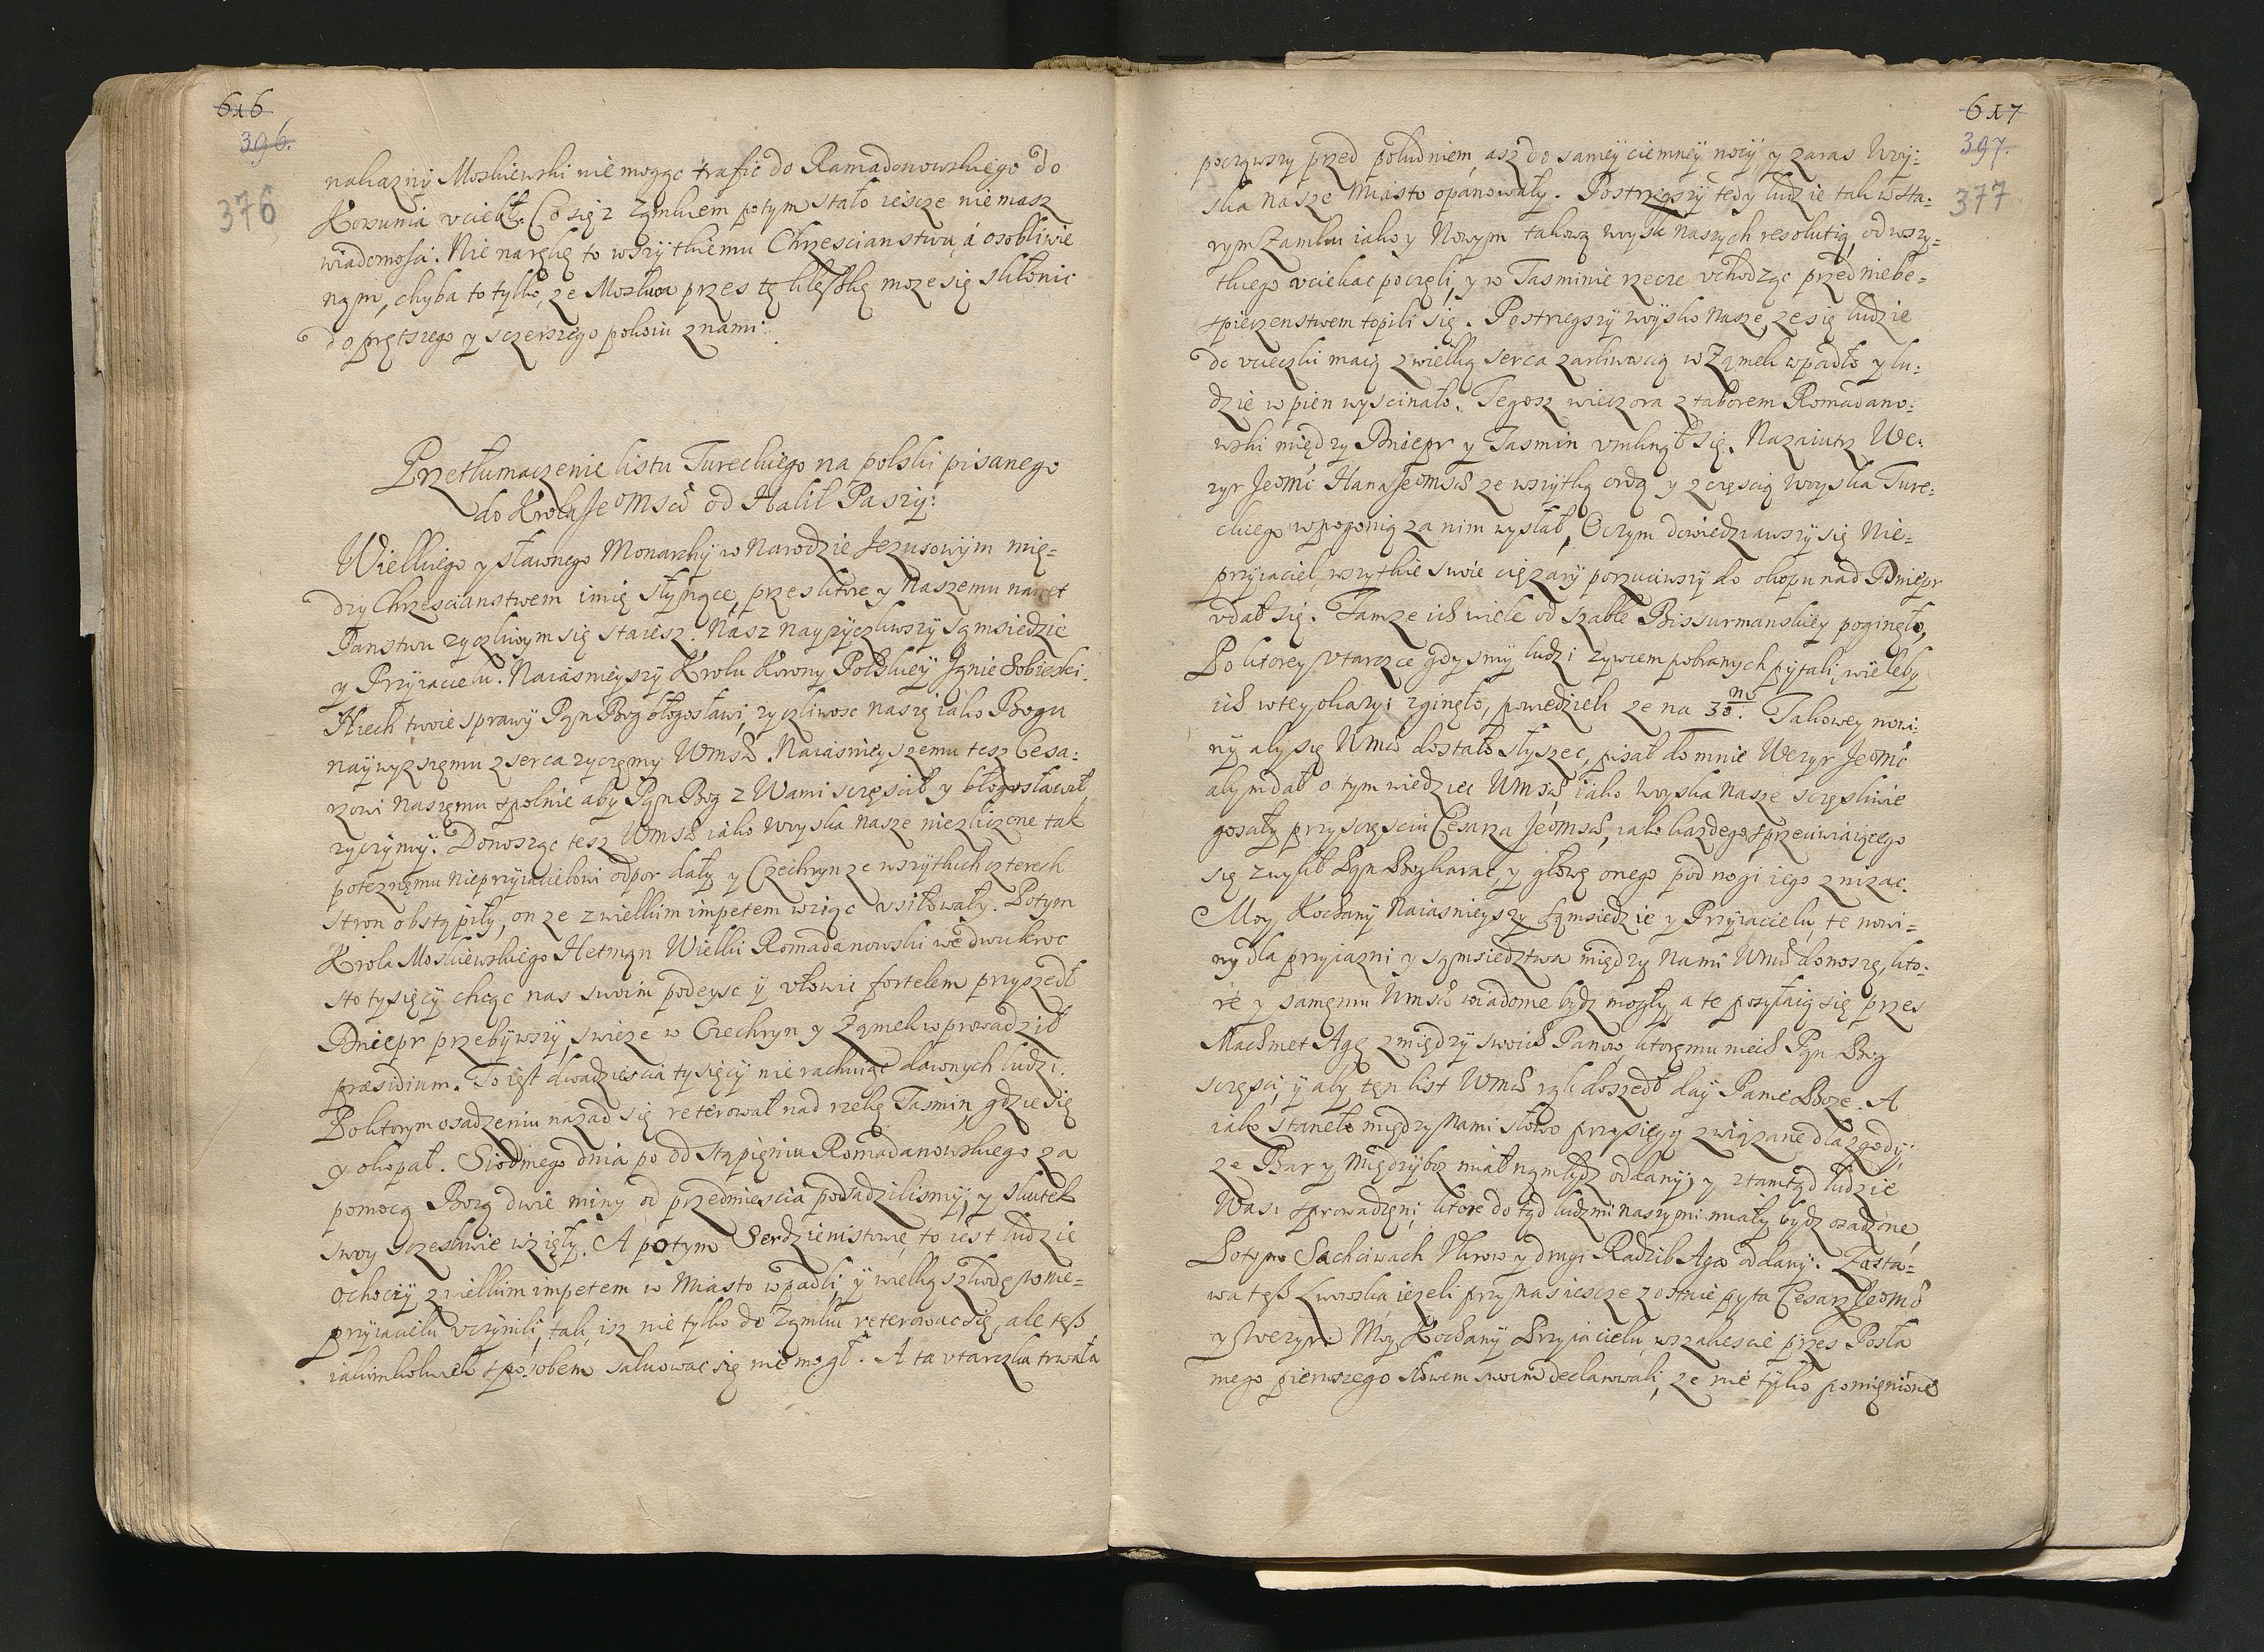 616
396.
376
nakazny Moskiewski nie mogąc trafić do Ramadonowskiego do
Korsunia vciekł. Co się z Zamkiem potym stało iescze nie masz
wiadomośći. Nie nazbę to wszytkiemu Chrzescianstwu, á osobliwie
nąm, chyba to tylko, ze Moskwa przes tę klęskę moze się skłonić
do prętszego y sczerszego pokoiu z nami.
Przetłumaczenie listu Tureckiego na polski pisanego
do Krola Jeo Msći od Halil Paszy:
Wielkiego y sławnego Monarchy w Narodzie Jezusowym mię=
dzy Chrzescianstwem imię słynące, przes ktore y Naszemu nawet
Panstwu zyczliwym się stáiesz. Nasz nayzyczliwszy Sąmsiedzie
y Przyiacielu. Naiásnieyszy Krolu Korony Polskiey Janie Sobieski.
Niech twoie sprawy Pan Bog błogosławi, zyczliwosc naszę iako Bogu
naywyzszęmu z serca zyczęmy Wmsći. Naiásnieyszemu tesz Cesa:
rzowi Naszęmu społnie aby Pan Bog z Wami scęscił y błogosławił
zyczymy. Donosząc tesz Wmsći iako Woyska nasze niezliczone tak
potęznęmu nieprzyiacielowi odpor dały y Czechryn ze wszytkich czterech
stron obstąpiły, on ze z wielkim impetem wziąc vsiłowały. Potym
Krola Moskiewskiego Hetmąn Wielki Romadanowski we dwukroc
sto tysięcy chcąc nas swoim podeysc y vłowic fortelem przyszedł
Dniepr przebywszy, swieze w Czechryn y Ząmek wprowadził
præsidium. To iest dwadziescia tysięcy nie rachuiąc dawnych ludzi.
Po ktorym osadzeniu nazad się reterował nad rzekę Tasmin, gdzie się
y okopał. Siodmego dnia po od stąpieniu Romadanowskiego za
pomocą Bozą dwie miny od przedmiescia podsadzilismy, y skutek
swoy sczesliwie wzięły. A potym Serdzienistowie, to iest ludzie
ochoczy z wielkim impetem w Miasto wpadli, y wielką szkodę w nie=
przyiacielu vczynili, tak, isz nie tylko do Ząmku reterowac się, ale tesz
iakimkolwiek sposobem salwowac się nie mogł. A ta vtarczka trwała
617
397.
377
począwszy przed południem, asz do samey ciemney nocy y zaras Woy:
ska nasze Miasto opanowały. Postrzegszy tedy ludzie tak w sta:
rym Zamku iako y Nowym takową woysk naszych resolutią, od wszy=
tkiego vciekac poczęli, y w Tasminie rzece vchodząc przed niebe=
spieczenstwem topili się. Postrzegszy woysko nasze, ze się ludzie
do vcieczki maią z wielką serca zarliwoscią w Ząmek wpadło y lu:
dzie w pien wyscinało. Tegosz wieczora z taborem Romadano:
wski między Dniepr y Tasmin vmknął się. Nazaiutrz We:
zyr Jeomć Hana Jeomsći ze wszytką ordą y z częscią Woyska Ture:
ckiego w pogonią za nim wysłał, O czym dowiedziawszy się Nie=
przyiaciel, wszytkie swoie cięzary porzuciwszy do okopu nad Dniepr
vdał się. Tamze ich wiele od szable Bissurmanskiey poginęło,
Po ktorey vtarczce gdysmy ludzi zywcem pobranych pytali, wieleby
ich w tey okazyi zginęło, powiedzieli ze na 30.m Takowey nowi:
ny aby się Wmści dostało słyszec, pisał do mnie Wezyr Jeomć
abym dał o tym wiedziec Wmsći, iako Woyska nasze scęsliwie
gosały przy scęsciu Cesarza Jeomsći, iako kazdego sprzeciwiaiącego
się zwykł Pan Bog karac, y głowę onego pod nogi iego znizac.
Moy Kochany Naiasnieyszy Sąmsiedzie y Przyiacielu, te nowi=
ny dla przyiazni y sąmsiedztwa między Nami Wmsći donoszę, kto:
re y samęmu Wmsći wiadome bydz mogły, a te posyłaią się przes
Machmet Agę z między swoich Panow, ktoręmu niech Pan Bog
scęsci, y aby tęn list Wmsći rąk doszedł day Panie Boze. A
iako stanęło między Nami słowo przysięgą związane dla zgody,
ze Bar y Międzyboz miał nąm bydz oddany, y ztamtąd ludzie
Wasi sprowadzęni, ktore do tąd ludzmi naszymi miały bydz osadzone,
Potym Sachciwach Vkrow y drugi Radzib Aga oddany. Zasta=
wa tesz Lwowska iezeli przy Nas iescze zostaie pyta Cesarz Jeomć
y Wezyr. Moy Kochany Przyiacielu, wszakescie przes Posła
mego pierwszego słowem swoim declarowali, ze nie tylko pomięnione